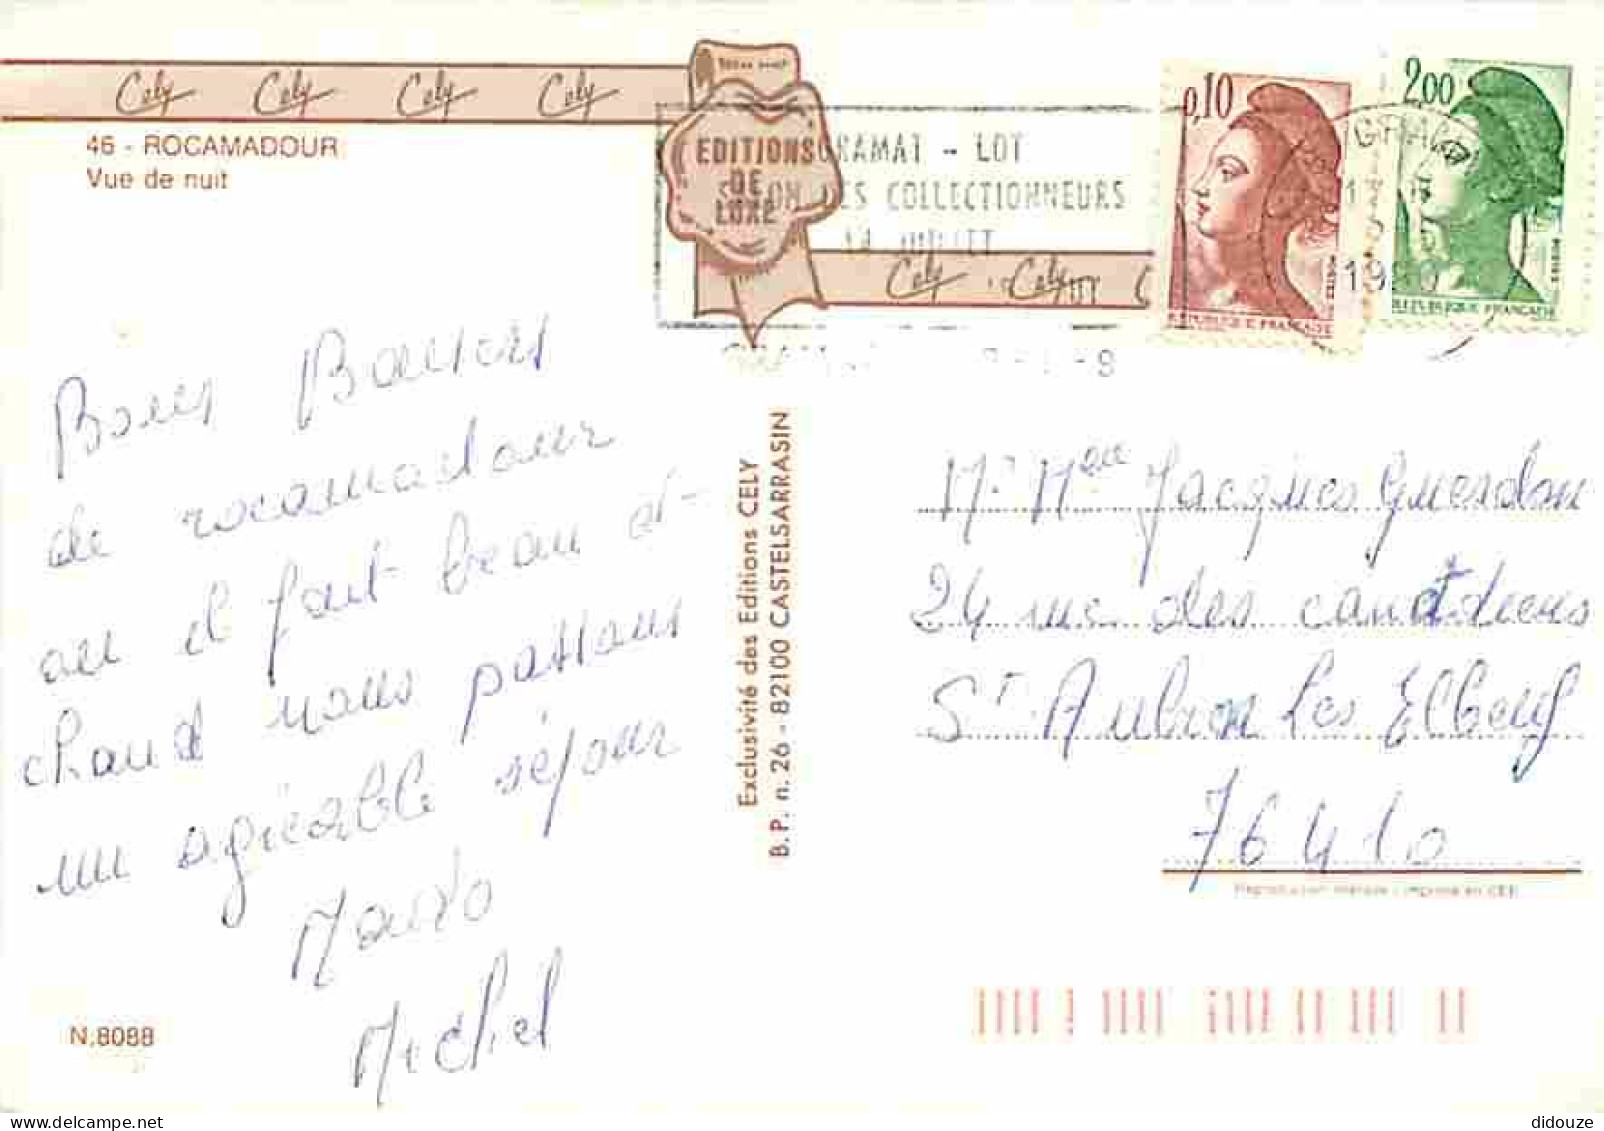 Cely Cely Cely Cely
46 - ROCAMADOUR
Vue de nuit
EDITIONS
DE
LUXE
GRAMAT - LOT
SALON DES COLLECTIONNEURS
14 JUILLET
Cely Cely
0,10
REPUBLIQUE FRANÇAISE
2,00
REPUBLIQUE FRANÇAISE
GRAMAT
13
1990
Bons Baisers
de rocamadour
ou il fait beau et
chaud nous passons
un agréable séjour
Michel
N.8088
Exclusivité des Editions CELY
B.P. n. 26 - 82100 CASTELSARRASIN
Mr Mme Jacques Guerdon
24 rue des canadiens
St Aubin Les Elbeuf
76410
didouze | Delcampe.net